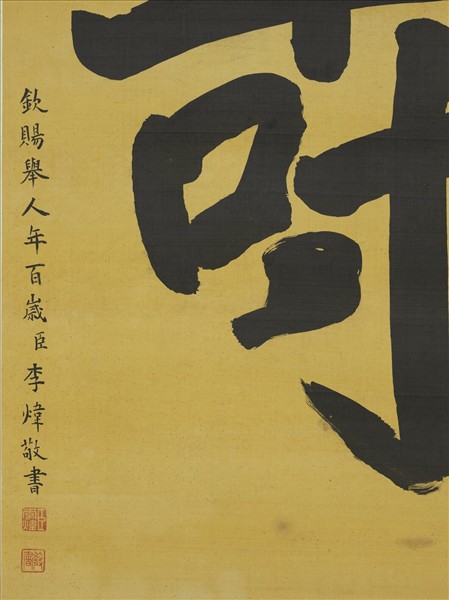 壽
欽賜舉人年百歲臣李煒敬書